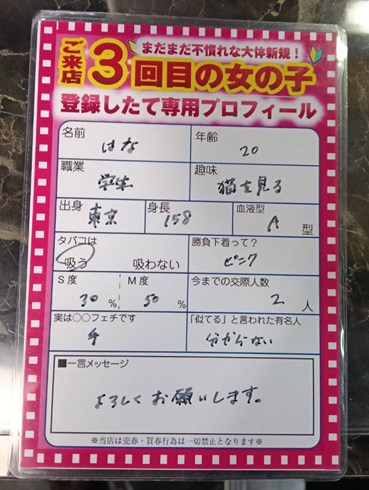 まだまだ不慣れな大体新規！
ご来店3回目の女の子
登録したて専用プロフィール
名前 はな 年齢 20
職業 学生 趣味 猫を見る
出身 東京 身長 158 血液型 A 型
タバコは 吸う 吸わない 勝負下着って？ ピンク
S度 30 % M度 50 % 今までの交際人数 2 人
実は○○フェチです 手 「似てる」と言われた有名人 分からない
■一言メッセージ
よろしくお願いします。
※当店は売春・買春行為は一切禁止となります※